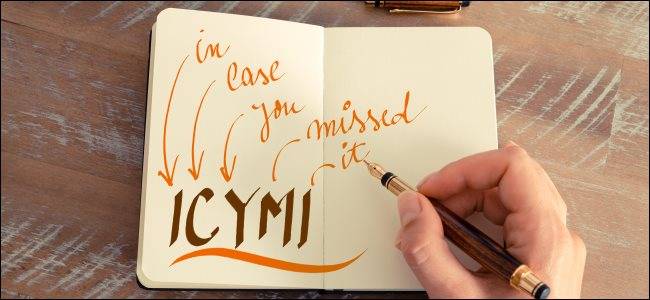 in
case
you
missed
it
ICYMI